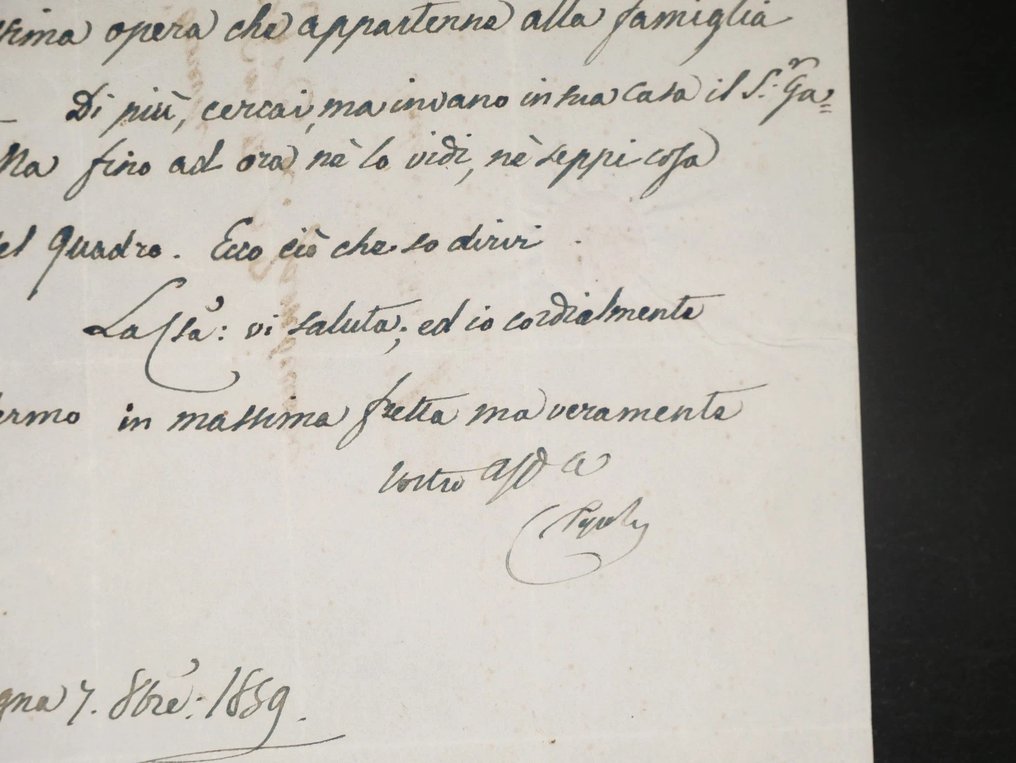 sima opera che appartenne alla famiglia
Di più, cercai, ma invano in sua casa il S.r Ga=
Ma fino ad ora nè lo vidi, nè seppi cosa
del Quadro. Ecco ciò che so dirvi
La Ssa: vi saluta; ed io cordialmente
ermo in massima fretta ma veramente
Vostro
gna 7. 8bre: 1859.